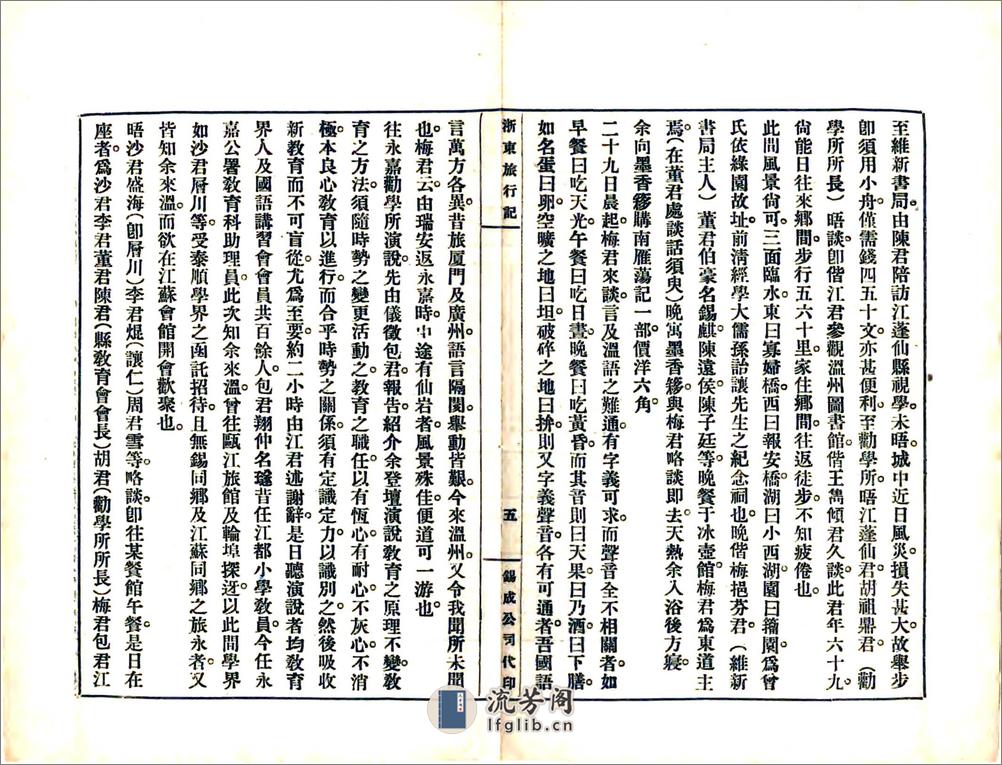 至維新書局由陳君陪訪江蓬仙縣視學未晤城中近日風災損失甚大故舉步
卽須用小舟僅需錢四五十文亦甚便利至勸學所晤江蓬仙君胡祖鼎君（勸
學所所長）晤談卽偕江君參觀溫州圖書館偕王雋傾君久談此君年六十九
尙能日往來鄉間步行五六十里家住鄉間往返徒步不知疲倦也
此間風景尙可三面臨水東曰寡婦橋西曰報安橋湖曰小西湖園曰籀園爲曾
氏依綠園故址前淸經學大儒孫詒讓先生之紀念祠也晚偕梅挹芬君（維新
書局主人）董君伯豪名錫麒陳遠侯陳子廷等晚餐于冰壺館梅君爲東道主
焉（在董君處談話須臾）晚寓墨香簃與梅君略談即去天熱余入浴後方寢
余向墨香簃購南雁蕩記一部價洋六角
二十九日晨起梅君來談言及溫語之難通有字義可求而聲音全不相關者如
早餐曰吃天光午餐曰吃日晝晚餐曰吃黃昏而其音則曰天果曰乃酒曰下膳
如名蛋曰卵空曠之地曰坦破碎之地曰拚則又字義聲音各有可通者吾國語
浙東旅行記
五
錫成公司代印
言萬方各異昔旅厦門及廣州語言隔閡舉動皆艱今來溫州又令我聞所未聞
也梅君云由瑞安返永嘉時中途有仙岩者風景殊佳便道可一游也
往永嘉勸學所演說先由儀徵包君報告紹介余登壇演說敎育之原理不變敎
育之方法須隨時勢之變更活動之敎育之職任以有恆心有耐心不灰心不消
極本良心敎育以進行而合乎時勢之關係須有定識定力以識別之然後吸收
新敎育而不可盲從尤爲至要約二小時由江君述謝辭是日聽演說者均敎育
界人及國語講習會會員共百餘人包君翔仲名璲昔任江都小學敎員今任永
嘉公署敎育科助理員此次知余來溫曾往甌江旅館及輪埠探迓以此間學界
如沙君厝川等受泰順學界之函託招待且無錫同鄉及江蘇同鄉之旅永者又
皆知余來溫而欲在江蘇會館開會歡聚也
晤沙君盛海（卽厝川）李君焜（讓仁）周君雪等略談卽往某餐館午餐是日在
座者爲沙君李君董君陳君（縣敎育會會長）胡君（勸學所所長）梅君包君江
流芳阁
lfglib.cn